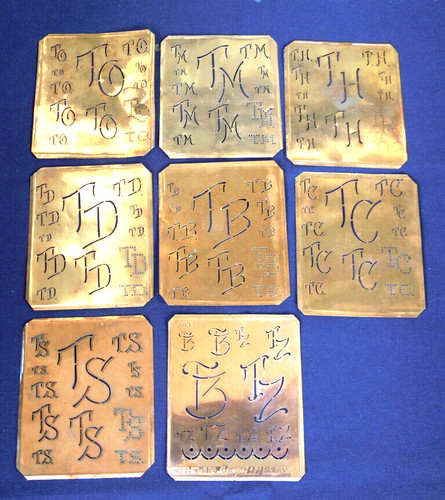 TO TO TO TO TO TO TO TO TO TO
TM TM TM TM TM TM TM TM TM TM
TH TH TH TH TH TH TH TH TH TH
TD TD TD TD TD TD TD TD TD TD
TB TB TB TB TB TB TB TB TB TB
TC TC TC TC TC TC TC TC TC TC
TS TS TS TS TS TS TS TS TS TS
TZ TZ TZ TZ TZ TZ TZ TZ